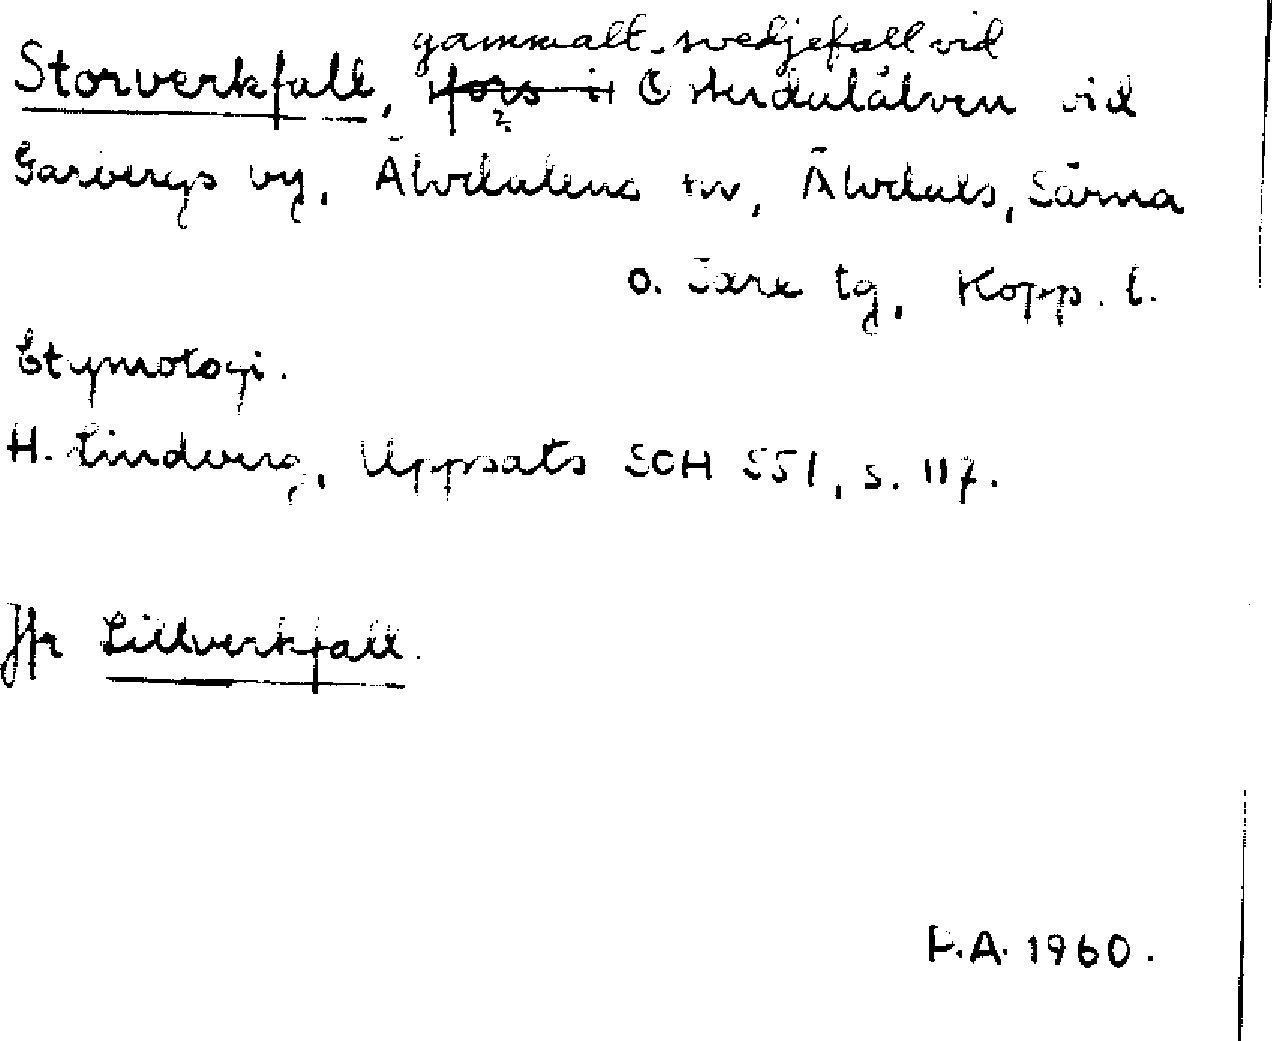 gammalt svedjefall vid
Storverkfall, fors i Österdalälven vid
?
Garbergs by, Älvdalens sn, Älvdals, Särna
o. Idre tg, Kopp. l.
Etymologi.
H. Lindberg, Uppsats SOH 551, s. 117.
Jfr Lillverkfall.
P.A. 1960.